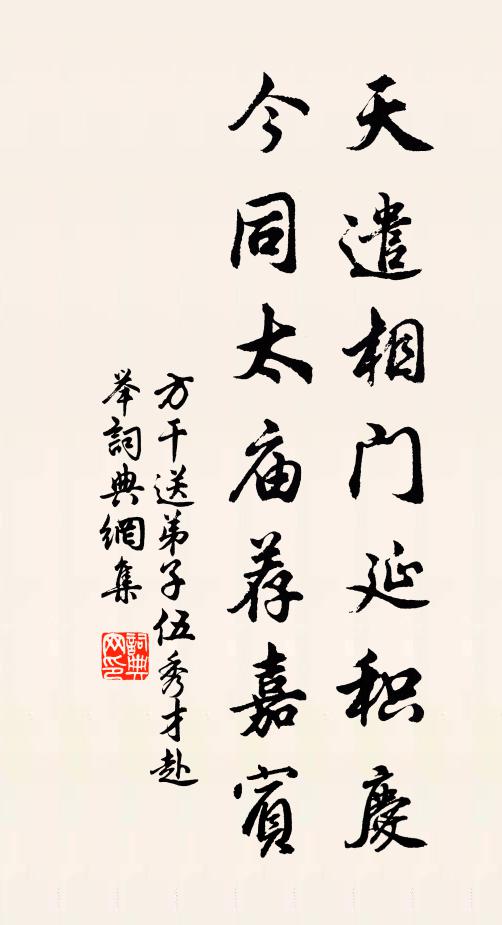 天遣相门延积慶
今同太庙荐嘉賓
方干送弟子伍秀才赴
举詞典網集
詞典網印